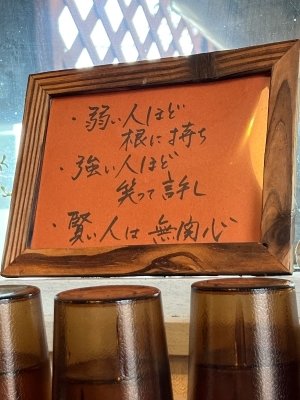 ・弱い人ほど
根に持ち
・強い人ほど
笑って許し
・賢い人は無関心